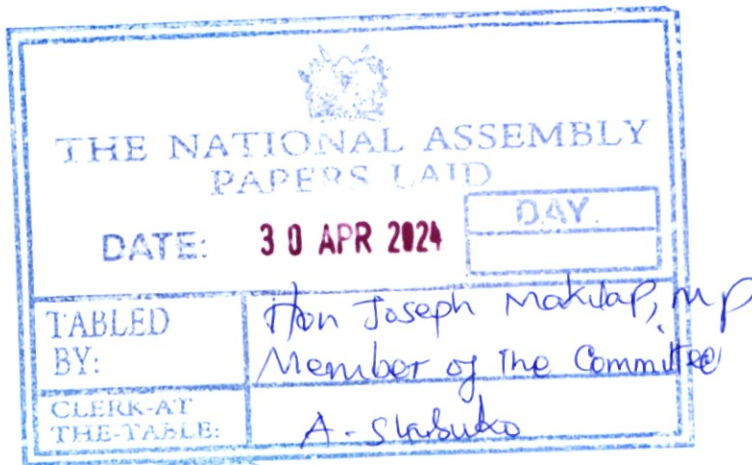 THE NATIONAL ASSEMBLY
PAPERS LAID
DATE: 30 APR 2024
DAY.
TABLED BY:
Hon Joseph Makilap, MP
Member of The Committee
CLERK-AT THE-TABLE:
A.